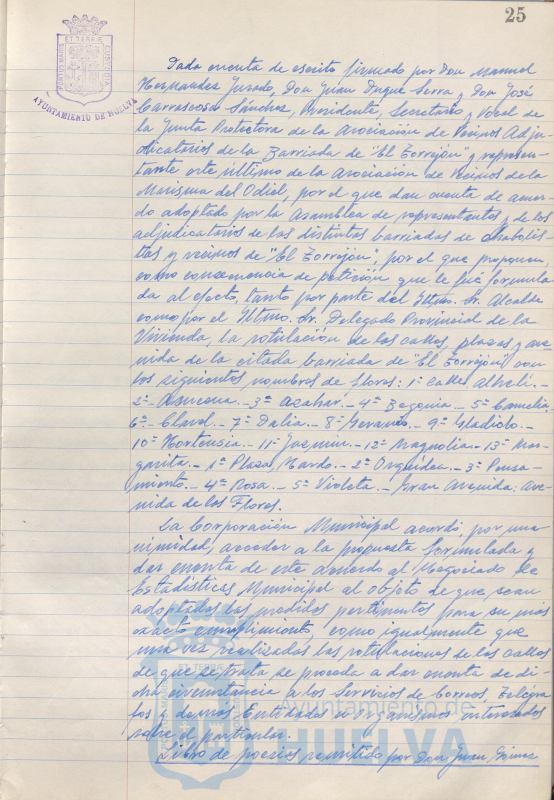 25
AYUNTAMIENTO DE HUELVA
Dada cuenta de escrito firmado por Don Manuel
Hernandez Jurado, Don Juan Duque Serra y Don José
Carrascosa Sánchez, Presidente, Secretario y Vocal de
la Junta Protectora de la Asociación de Vecinos Adju-
dicatarios de la Barriada de "El Torrejón" y represen-
tante este último de la Asociación de Vecinos de la
Marisma del Odiel, por el que dan cuenta de acuer-
do adoptado por la Asamblea de representantes y de los
adjudicatarios de las distintas barriadas de Chabolis-
tas y vecinos de "El Torrejón", por el que proponen,
como consecuencia de petición que le fué formula
da al efecto, tanto por parte del Iltmo. Sr. Alcalde
como por el Iltmo. Sr. Delegado Provincial de la
Vivienda, la rotulación de las calles, plazas y ave
nida de la citada barriada de "El Torrejón" con
los siguientes nombres de flores: 1ª calle Alheli.-
2ª Azucena.- 3ª Azahar.- 4ª Begonia.- 5ª Camelia
6ª Clavel.- 7ª Dalia.- 8ª Geranio.- 9ª Gladiolo.-
10ª Hortensia.- 11ª Jazmin.- 12ª Magnolia.- 13ª Mar-
garita.- 1ª Plaza, Nardo.- 2ª Orquídea.- 3ª Pensa-
miento.- 4ª Rosa.- 5ª Violeta.- Gran Avenida: Ave-
nida de las Flores.
La Corporación Municipal acordó, por una-
nimidad, acceder a la propuesta formulada y
dar cuenta de este acuerdo al Negociado de
Estadística Municipal al objeto de que sean
adoptadas las medidas pertinentes para su más
exacto cumplimiento, como igualmente que
una vez realizadas las rotulaciones de las calles
de que se trata se proceda a dar cuenta de di-
cha circunstancia a los Servicios de Correos, Telegra-
fos y demás Entidades u Organismos interesados
sobre el particular.
Libro de poesias remitido por Don Juan Gómez
Ayuntamiento de
HUELVA